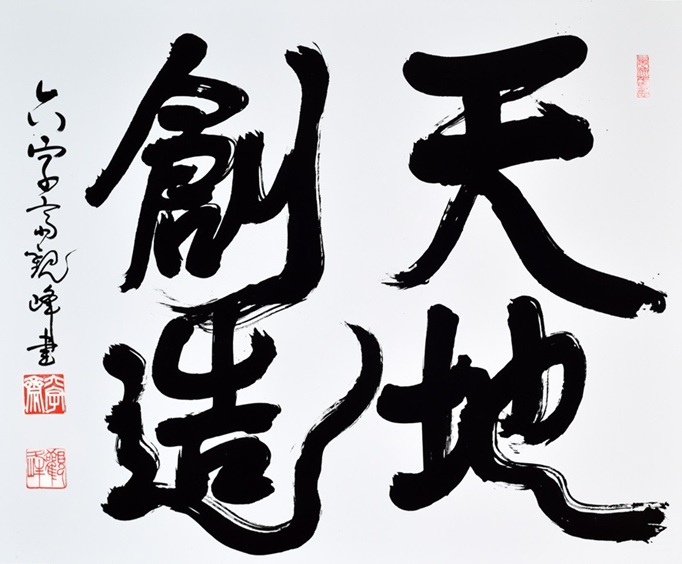 天地
創造
六字斎観峰書